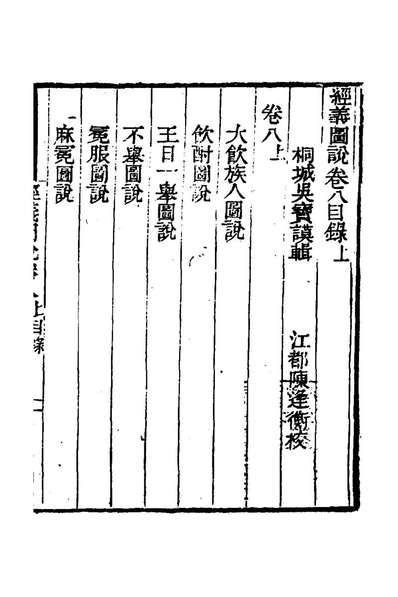 經義圖說卷八目錄上
桐城吳寶謨輯　江都陳逢衡校
卷八上
大飲族人圖說
飲酎圖說
王日一舉圖說
不舉圖說
冕服圖說
麻冕圖說
經義圖說卷八上目錄　一